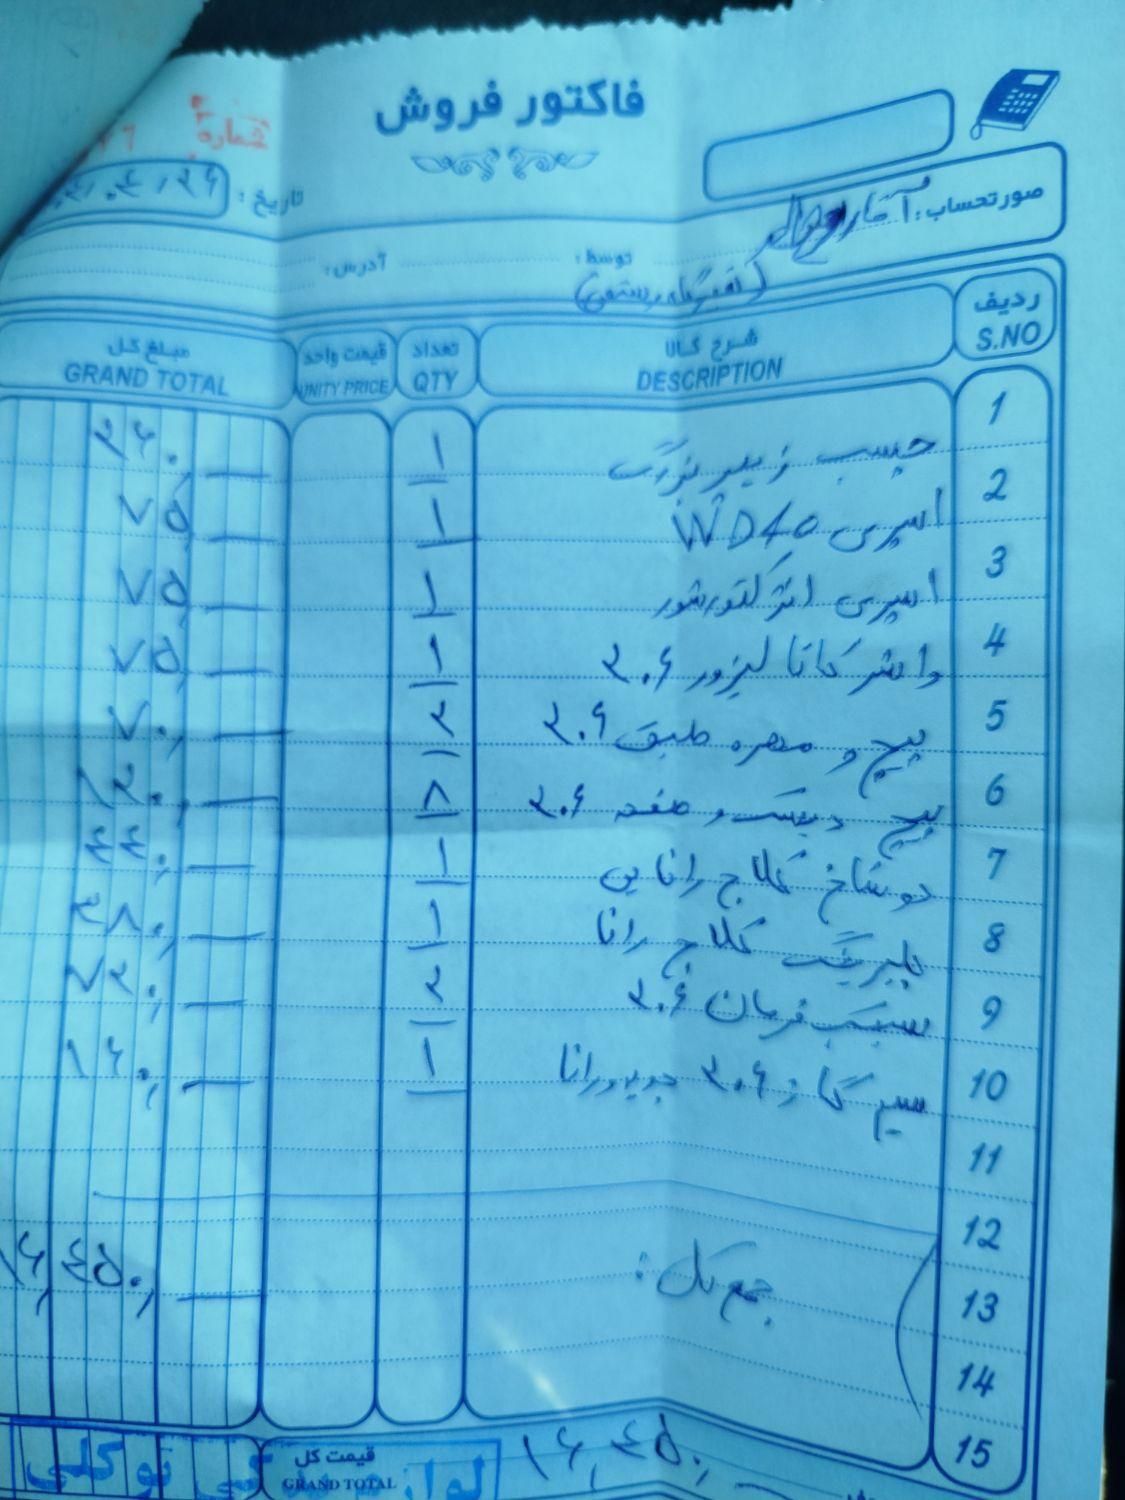 فاکتور فروش
شماره
تاریخ:
صورتحساب: آقای
آدرس: توسط:
ردیف S.NO شرح کالا DESCRIPTION تعداد QTY قیمت واحد UNITY PRICE مبلغ کل GRAND TOTAL
1 چسب زبیر بزرگ ۱ ۲۶۰,
2 اسپری WD40 ۱ ۷۵,
3 اسپری انژکتورشور ۱ ۷۵,
4 واشر کاتالیزور ۲۰۶ ۱ ۷۵,
5 پیچ و مهره طبق ۲۰۶ ۲ ۷۰,
6 پیچ دیسک و صفحه ۲۰۶ ۸
7 دوشاخ کلاج رانایی ۱ ۴۴۰,
8 بلبرینگ کلاج رانا ۱ ۳۸۰,
9 سیبک فرمان ۲۰۶ ۲ ۷۲۰,
10 سیم گاز ۲۰۶ جدید ورانا ۱ ۱۶۰,
11
12
13 جمع کل: ۴۵۰,
14
15
قیمت کل GRAND TOTAL
لوازم یدکی توکلی